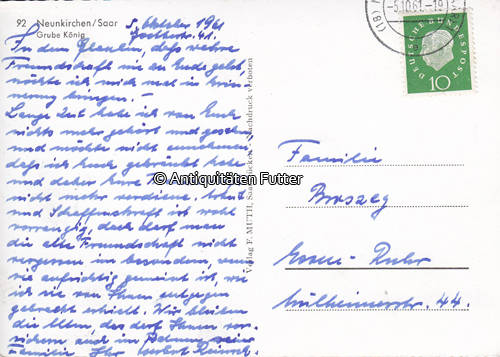 92 Neunkirchen/Saar
Grube König
5. Oktober 1961
41.
In dem Glauben, daß wahre
Freundschaft nie zu Ende geht
möchte ich mich mal in Erin-
nerung bringen. –
Lange Zeit habe ich von Euch
nichts mehr gehört und gesehen
und möchte nicht annehmen
daß ich Euch gekränkt habe
und daher Eure
nicht mehr verdiene.
und Schaffenskraft ist wohl
vorrangig, doch darf man
die alte Freundschaft nicht
vergessen im besonderen, wenn
sie aufrichtig gemeint ist, wie
ich sie von Ihnen entgegen
gebracht erhielt. Wir bleiben
die Alten, das darf Ihnen ver-
sichern auch im Namen seiner
Familie Ihr
Verlag F. MUTH, Saarbrücken - Nachdruck verboten
© Antiquitäten Futter
-5.10.61.-19
DEUTSCHE BUNDESPOST
10
Familie
Essen-Ruhr
Mülheimerstr. 44.